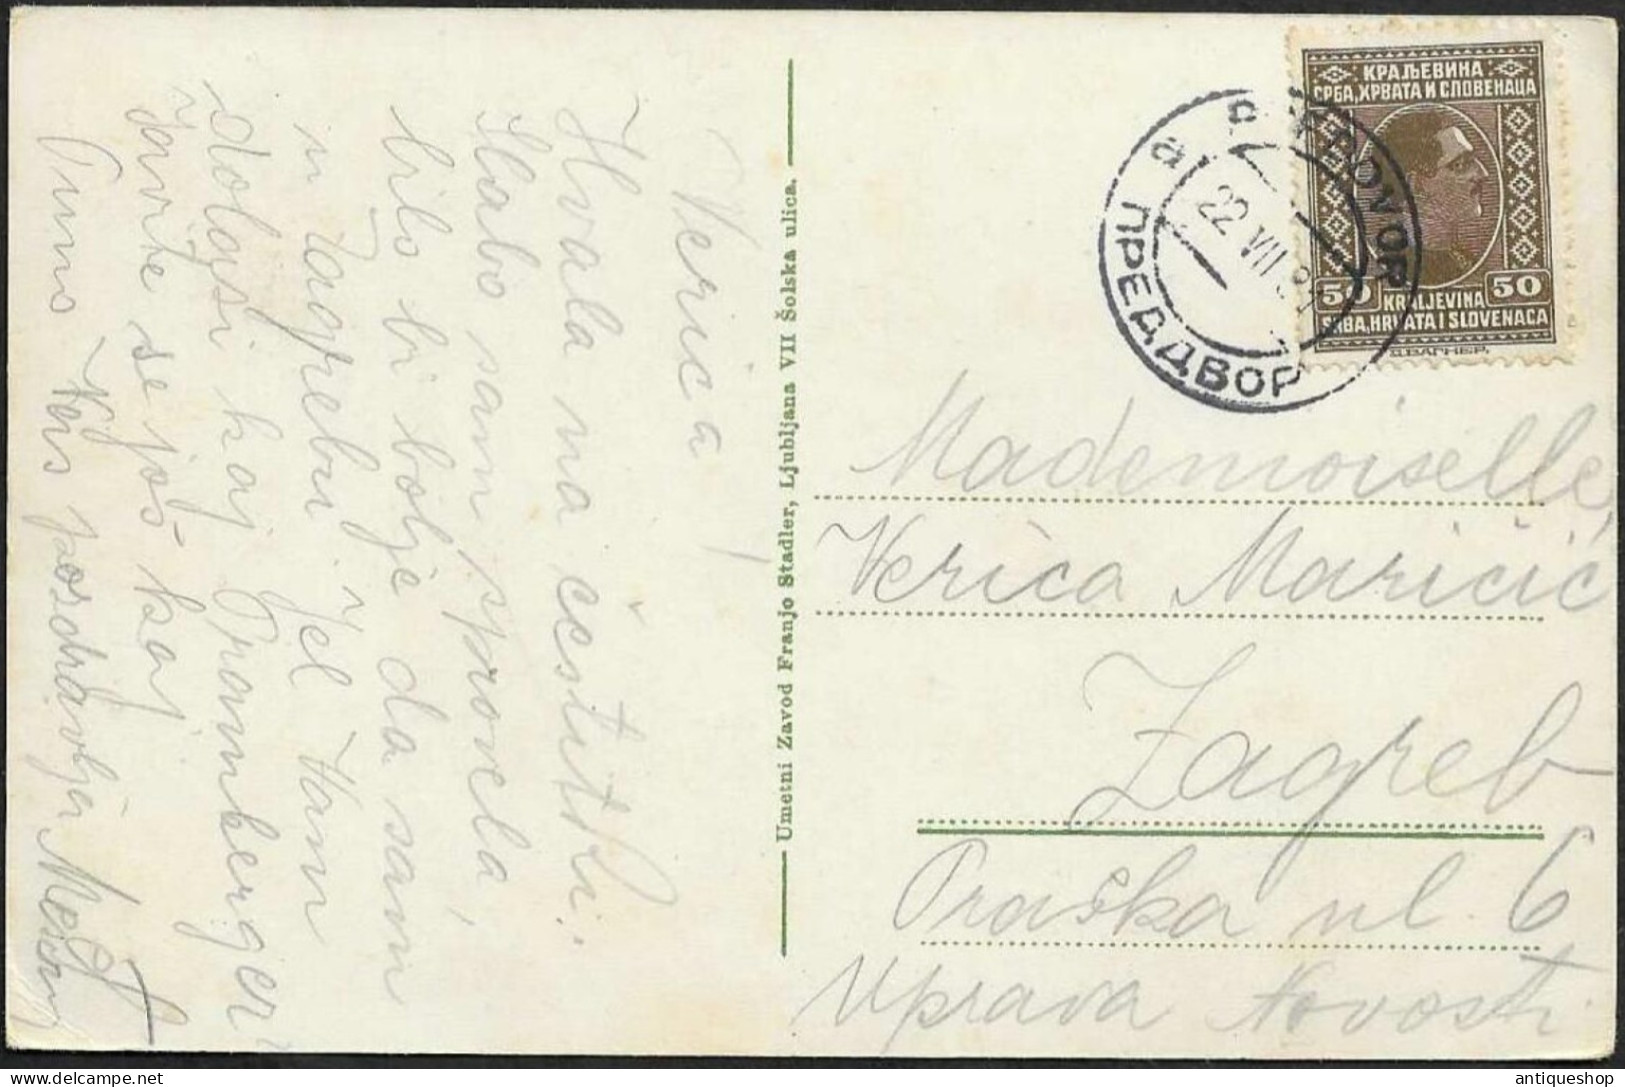 Verica!
Hvala na čestitki.
Slabo sam sprovela,
bilo bi bolje da sam
u Zagrebu. Jel Vam
dolazi kaj Pramberger
Javite se još koj
Puno Vas pozdravlja
Umetni Zavod Franjo Stadler, Ljubljana VII Šolska ulica.
КРАЉЕВИНА
СРБА, ХРВАТА И СЛОВЕНАЦА
50 KRALJEVINA 50
SRBA, HRVATA I SLOVENACA
Д. ВАГНЕР.
a
PREDDVOR
23 VII
ПРЕДДВОР
Mademoiselle,
Verica Maričić
Zagreb
Praška ul. 6
Uprava Novosti
antiqueshop